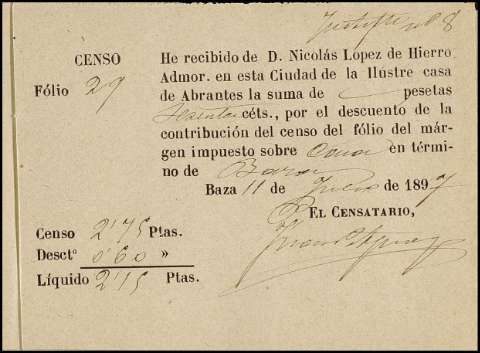 nº 8
CENSO
Fólio 29
He recibido de D. Nicolás Lopez de Hierro
Admor. en esta Ciudad de la Ilustre casa
de Abrantes la suma de pesetas
Sesenta céts., por el descuento de la
contribución del censo del fólio del már-
gen impuesto sobre Casa en térmi-
no de Baza
Baza 11 de Julio de 1897
EL CENSATARIO,
Censo 2'75 Ptas.
Desctº 0'60 »
Líquido 2'15 Ptas.